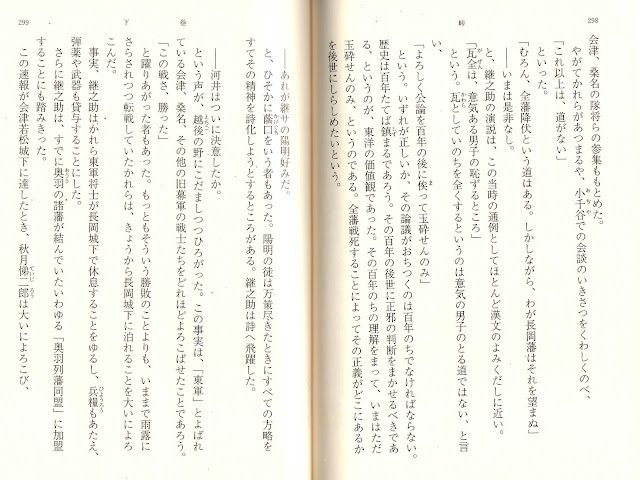 298
峠
会津、桑名の隊将らの参集ももとめた。
やがてかれらがあつまるや、小千谷での会談のいきさつをくわしくのべ、
「これ以上は、道がない」
といった。
「むろん、全藩降伏という道はある。しかしながら、わが長岡藩はそれを望まぬ」
――いまは是非なし。
と、継之助の演説は、この当時の通例としてほとんど漢文のよみくだしに近い。
「瓦全は、意気ある男子の恥ずるところ」
という。瓦としていのちを全くするというのは意気の男子のとる道ではない、と言
い、
「よろしく公論を百年の後に俟って玉砕せんのみ」
という。いずれが正しいか、その論議がおちつくのは百年のちでなければならない。
歴史は百年たてば鎮まるであろう。その百年の後世に正邪の判断をまかせるべきであ
る、というのが、東洋の価値観であった。その百年のちの理解をまって、いまはただ
玉砕せんのみ、というのである。全藩戦死することによってその正義がどこにあるか
を後世にしらしめたいという。
299
下巻
――あれが継サの陽明好みだ。
と、ひそかに蔭口をいう者もあった。陽明の徒は万策尽きたときにすべての方略を
すててその精神を詩化しようとするところがある。継之助は詩へ飛躍した。
――河井はついに決意したか。
という声が、越後の野にこだましつつひろがった。この事実は、「東軍」とよばれ
ている会津、桑名、その他の旧幕軍の戦士たちをどれほどよろこばせたことであろう。
「この戦さ、勝った」
と躍りあがった者もあった。もっともそういう勝敗のことよりも、いままで雨露に
さらされつつ転戦していたかれらは、きょうから長岡城下に泊れることを大いによろ
こんだ。
事実、継之助はかれら東軍将士が長岡城下で休息することをゆるし、兵糧もあたえ、
弾薬や武器も貸与することにした。
さらに継之助は、すでに奥羽の諸藩が結んでいたいわゆる「奥羽列藩同盟」に加盟
することにも踏みきった。
この速報が会津若松城下に達したとき、秋月悌二郎は大いによろこび、